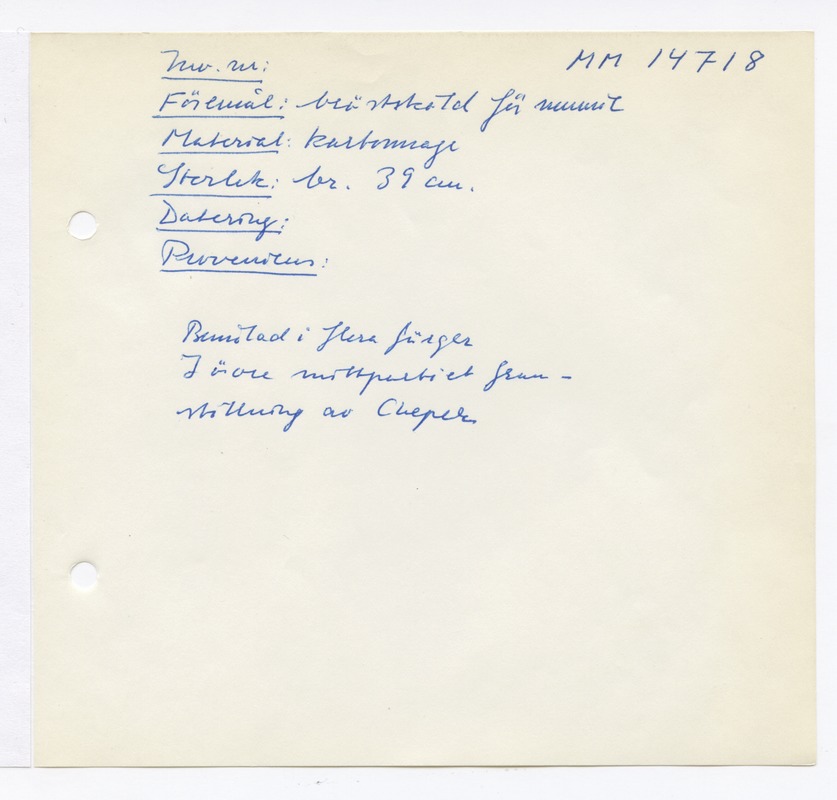 Inv. nr: MM 14718
Föremål: bröstsköld för mumie
Material: kartonnage
Storlek: br. 39 cm.
Datering:
Proveniens:
Bemålad i flera färger
I övre mittpartiet fram-
ställning av Cheper